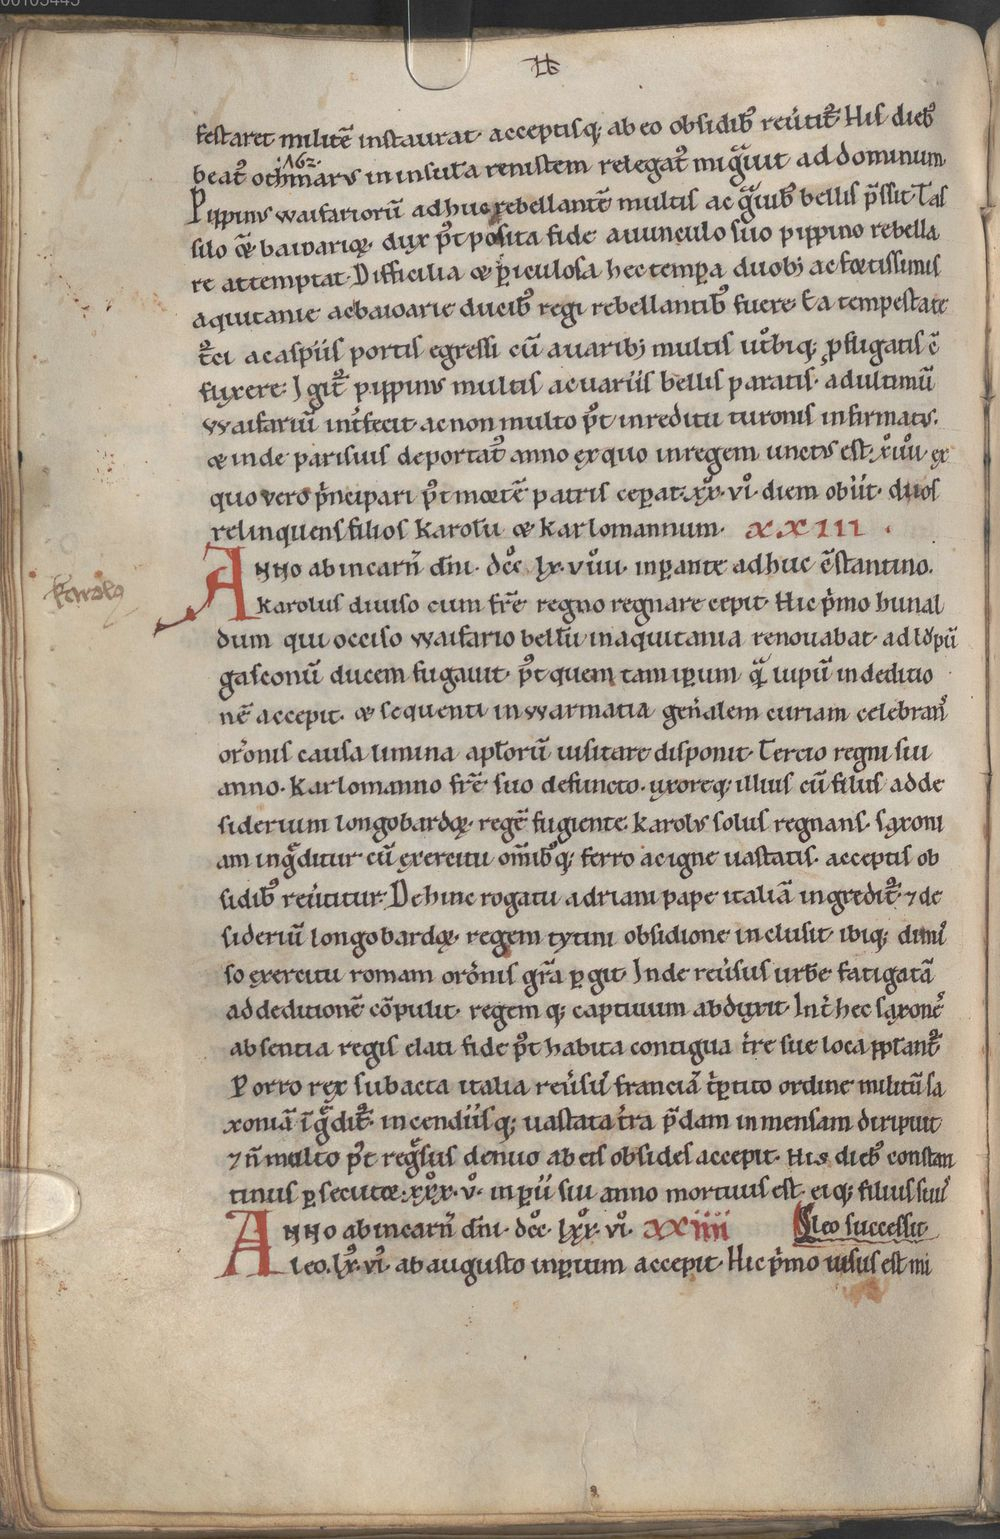 festaret militē instaurat· acceptisq; ab eo obsidib᷒ reu̓tit᷑ His dieb᷒
·A62·
beat᷒ othmarus in insula renistem relegat᷒ migͣuit ad dominum·
Pippinus waifariorū adhuc rebellantē multis ac gͣuib᷒ bellis p̄ssit· Tas
silo q̄ bawarię· dux p᷒t posita fide auunculo suo pippino rebella
re attemptat· Difficilia & piculosa hec tempa duob; ac fortissimis
aquitanie ac baioarie ducib᷒ regi rebellantib᷒ fuere· Ea tempestate
t᷑ci a caspiis portis egressi cū auarib; multis ut᷑biq; ꝓfligatis c̄
fluxere· Igit᷑ pippinus multis ac uariis bellis paratis· ad ultimū
Waifariū int̓fecit· ac non multo p᷒t in reditu turonis infirmatus·
& inde parisius deportat᷒ anno ex quo in regem unctus est· xͦuͦ· ex
quo vero p̓ncipari p᷒t mortē patris ceperat· xx· vi· diem obiit· duos
relinquens filios karolū & karlomannum· XXIII ·
ANNO ab incarn̄ dn̄i· dcc· lx· viiii· inpante adhuc c̄stantino·
karolus diuiso cum fr̄e regno regnare cepit· Hic p̓mo hunal
karolꝯ
dum qui occiso waifario bellū in aquitania renouabat· ad lupū
gasconū ducem fugauit· p᷒t quem tam ipum qͣ uipū in deditio
nē accepit· & sequenti in warmatia gen̄alem curiam celebran᷒
or̄onis causa limina apl̄orū uisitare disponit· Tercio regni sui
anno· karlomanno fr̄e suo defuncto· uxoreq; illius cū filiis ad de
siderium longobardoꝝ· regē fugiente· karolus solus regnans· saxoni
am ingͣditur cū exercitu om̄ib᷒q; ferro ac igne uastatis· acceptis ob
sidib᷒ reu̓titur· Dehinc rogatu adriani pape italiā ingredit᷑ ⁊ de
sideriū longobardoꝝ· regem tytini obsidione inclusit· ibiq; dimi᷒
so exercitu romam or̄onis gr̄a pgit· Inde reu̓sus urbē fatigatā
ad deditionē cōpulit· regem q; captiuum abduxit· Int̓ hec saxon᷒
absentia regis elati fide p᷒t habita contigua t̓re sue loca pp̄lant᷑
Porro rex subacta italia reu̓sus᷒ franciā t̓ptito ordine militū sa
xoniā īgͣdit᷑· incendiisq; uastata t̓ra p̄dam inmensam diripuit
⁊ n̄ multo p᷒t regͣsus denuo ab eis obsides accepit· His dieb᷒ constan
tinus psecutor· xxx· v· inpii sui anno mortuus est· eiq; filius suus᷒
ANNO ab incarn̄ dn̄i· dcc· lxx· vi· XXIIII leo successit
leo· lx· vi· ab augusto inpium accepit· Hic p̓mo uisus est mi